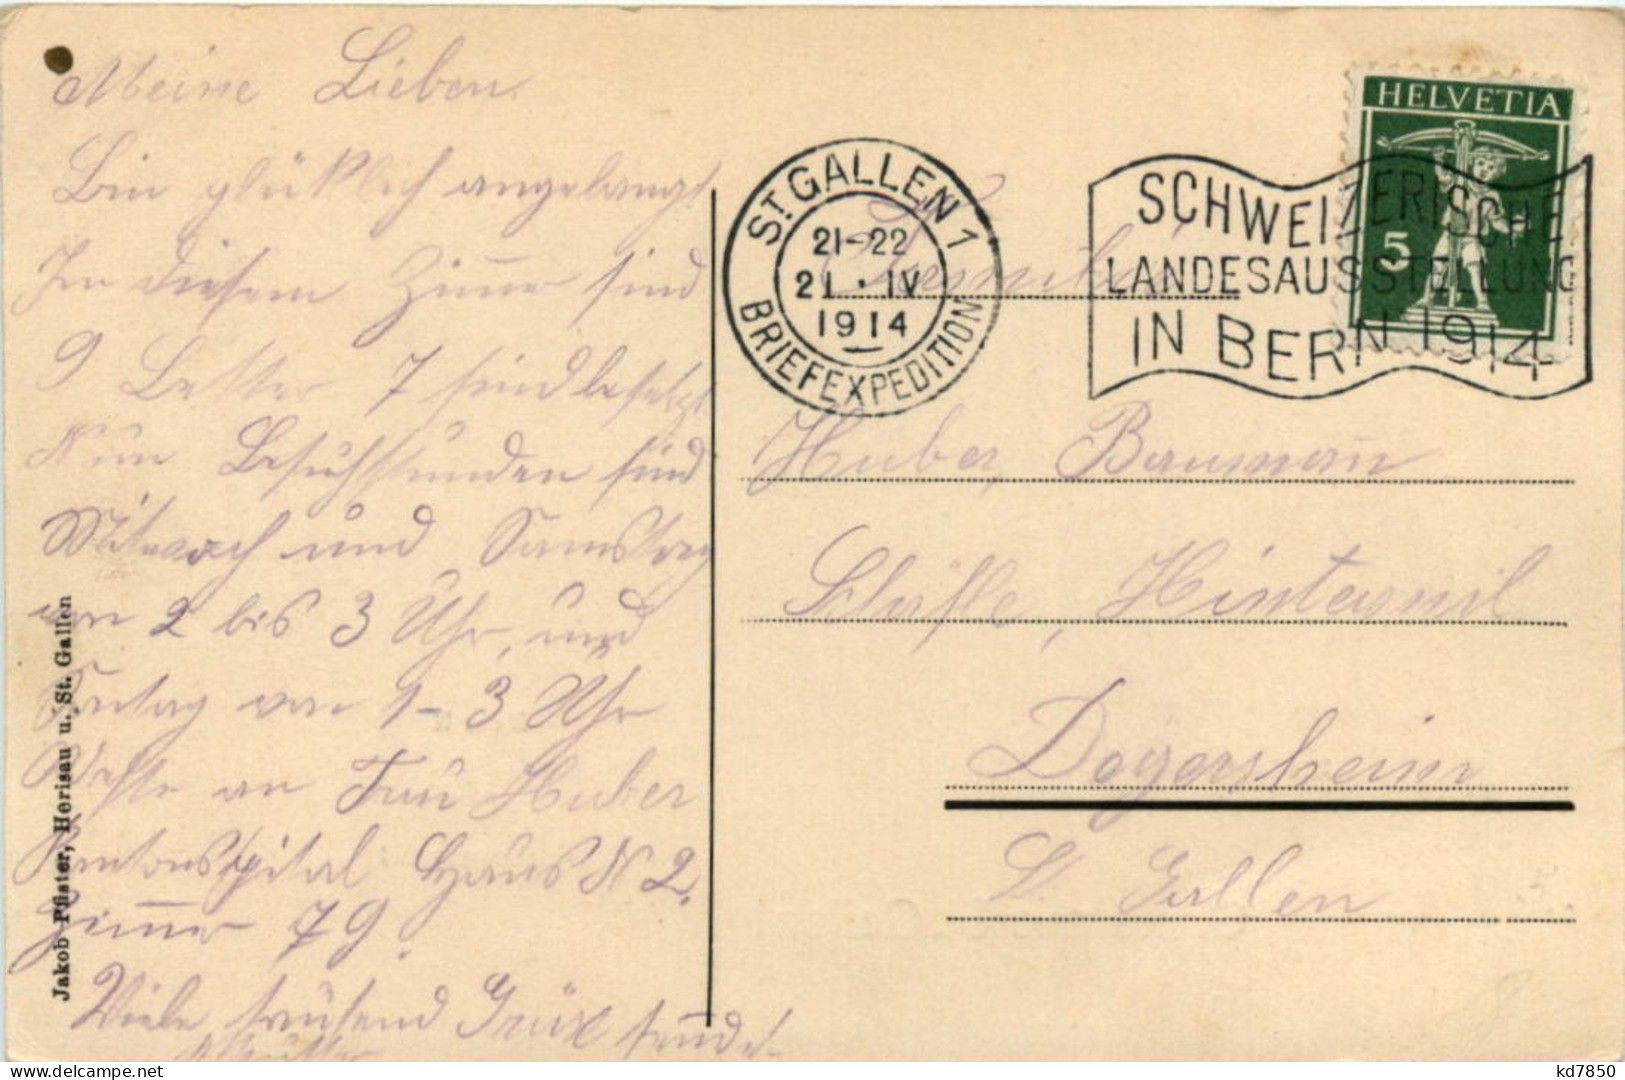 Meine Lieben
Bin glücklich angelangt
In diesem Zimmer sind
9 Better 7 sind besetzt
Nun Besuchstunden sind
Mitwoch und Samstag
von 2 bis 3 Uhr, und
Sontag von 1-3 Uhr
an Frau Huber
Kantonsspital Haus N 2.
Zimmer 79.
Viele tausend Grüße sendet
Mutter
Jakob Pfister, Herisau u. St. Gallen
ST. GALLEN 1
21-22
21. IV
1914
BRIEFEXPEDITION
HELVETIA
5
SCHWEIZERISCHE
LANDESAUSSTELLUNG
IN BERN 1914
Familie
Huber, Baumann
Schäfle, Hinterwil
Degersheim
St. Gallen
delcampe.net
kd7850